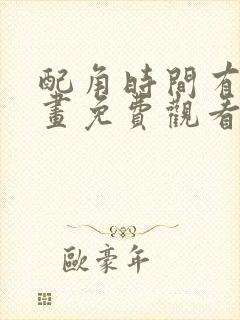 配角時間有
畫免費觀看
歐豪年